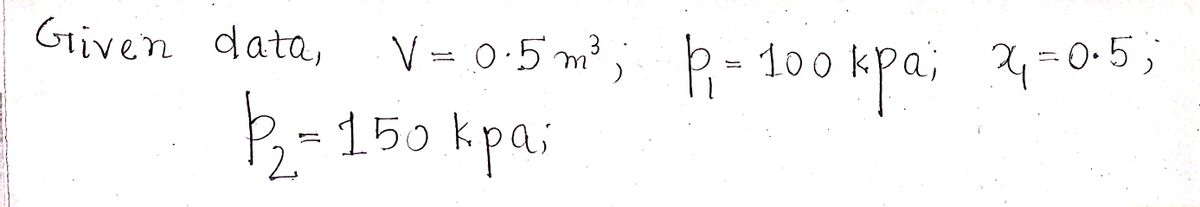 Given data, V = 0.5 m³; p₁ = 100 kpa; x₁ = 0.5;
p₂ = 150 kpa;